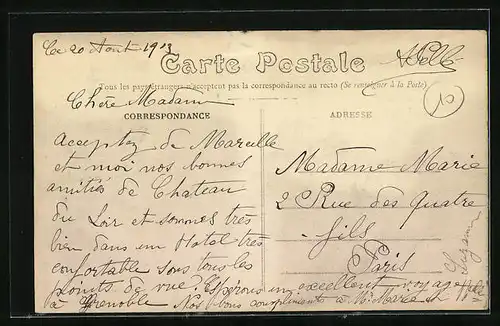 Ce 20 Aout 1913
Carte Postale
Tous les pays étrangers n'acceptent pas la correspondance au recto (Se renseigner à la Poste)
Chère Madame
CORRESPONDANCE
Acceptez de Marcelle
et moi nos bonnes
amitiés de Chateau
du Loir et sommes très
bien dans un Hotel très
confortable sous tous les
points de vue. Espérons un excellent voyage
à Grenoble Nos bons compliments à Mr Marie
10
ADRESSE
Madame Marie
2 Rue des Quatre
fils
Paris